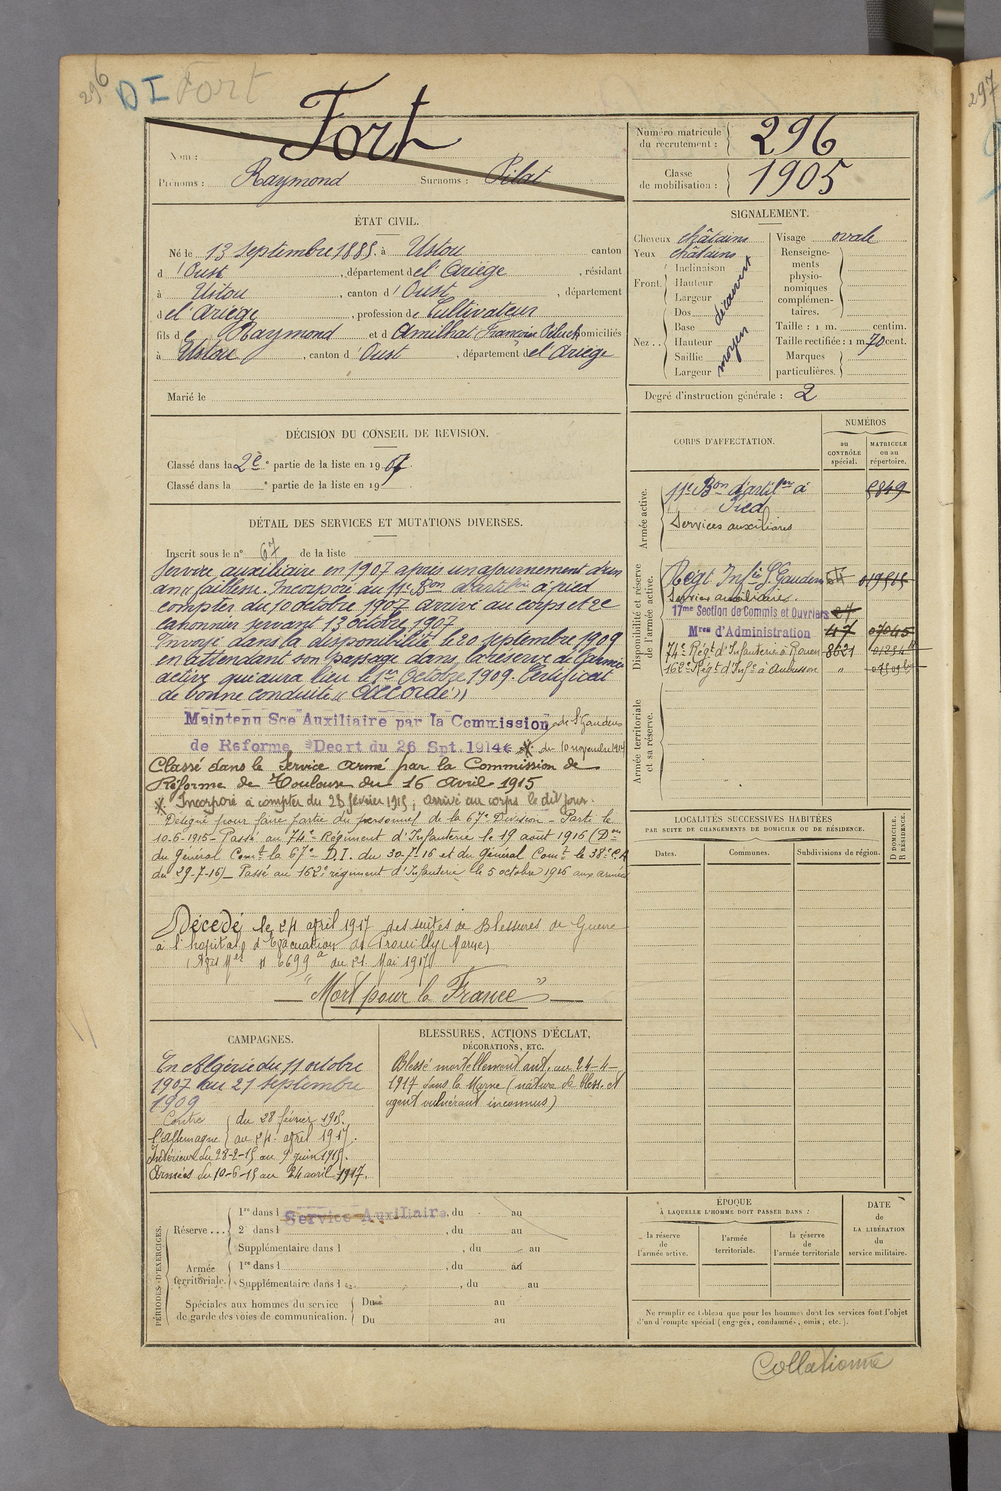 296 DI Fort
297
Nom : Fort
Prénoms : Raymond Surnoms : Pilat
Numéro matricule du recrutement : 296
Classe de mobilisation : 1905
ÉTAT CIVIL.
Né le 13 septembre 1885, à Ustou canton
d'Oust, département de l'Ariège, résidant
à Ustou, canton d'Oust, département
de l'Ariège, profession de Cultivateur
fils de Raymond et d'Amilhat Françoise domiciliés
à Ustou, canton d'Oust, département de l'Ariège
Marié le
SIGNALEMENT.
Cheveux châtains
Yeux châtains
Front. Inclinaison
Hauteur
Largeur
découvert
Nez.. Dos
Base
Hauteur
Saillie
Largeur
moyen
Visage ovale
Renseignements physionomiques complémentaires.
Taille : 1 m. centim.
Taille rectifiée : 1 m. 70 cent.
Marques particulières.
Degré d'instruction générale : 2
DÉCISION DU CONSEIL DE REVISION.
Classé dans la 2e partie de la liste en 1907
Classé dans la e partie de la liste en 19
DÉTAIL DES SERVICES ET MUTATIONS DIVERSES.
Inscrit sous le n° 67 de la liste
Service auxiliaire en 1907 après un ajournement d'un
an "faiblesse. Incorporé au 11e Bon d'artie à pied
compter du 10 octobre 1907 arrivé au corps et 2e
canonnier servant 13 octobre 1907
Envoyé dans la disponibilité le 20 septembre 1909
en attendant son passage dans la réserve de l'armée
active qui aura lieu le 1er Octobre 1909. Certificat
de bonne conduite « Accordé »
Maintenu Sce Auxiliaire par la Commission de St Gaudens
de Reforme Decrt du 26 Spt. 1914 * du 10 novembre 1914
Classé dans le Service armé par la Commission de
Réforme de Toulouse du 16 Avril 1915
* Incorporé à compter du 28 février 1915, arrivé au corps le dit jour.
Désigné pour faire partie du personnel de la 67e Division - Parti le
10-6-1915 - Passé au 74e Régiment d'Infanterie le 19 août 1916 (Don
du Général Comt la 67e D.I. du 30-7-16 et du Général Comt le 38e C.A
du 29-7-16) - Passé au 162e régiment d'Infanterie le 5 octobre 1916 aux armées
Décédé le 24 avril 1917 des suites de Blessures de Guerre
à l'hôpital d'Evacuation de Prouilly (Marne)
(Avis Mel n° 6699 du 21 Mai 1917)
"Mort pour la France"
CORPS D'AFFECTATION.
NUMÉROS
au CONTRÔLE spécial.
MATRICULE ou au répertoire.
Armée active.
11e Bon d'artie à Pied 5849
Services auxiliaires
Disponibilité et réserve de l'armée active.
Régt Infie St Gaudens
Services auxiliaires.
17me Section de Commis et Ouvriers
Mres d'Administration 47 07045
74e Régt d'Infanterie à Rouen 8621
162e Régt d'Infie à Aubusson "
Armée territoriale et sa réserve.
LOCALITÉS SUCCESSIVES HABITÉES
PAR SUITE DE CHANGEMENTS DE DOMICILE OU DE RÉSIDENCE.
Dates. Communes. Subdivisions de région. D DOMICILE. R RÉSIDENCE.
CAMPAGNES.
En Algérie du 11 octobre
1907 au 21 septembre
1909
Contre l'Allemagne du 28 février 1915.
au 24 avril 1917.
Intérieur du 28-2-15 au 9 juin 1915.
Armées du 10-6-15 au 24 avril 1917.
BLESSURES, ACTIONS D'ÉCLAT,
DÉCORATIONS, ETC.
Blessé mortellement ant. au 24-4-
1917 dans la Marne (nature de bless. et
agent vulnérant inconnus)
PÉRIODES D'EXERCICES.
Réserve....
1re dans l Service Auxiliaire, du au
2e dans l , du au
Supplémentaire dans l , du au
Armée territoriale.
1re dans l , du au
Supplémentaire dans l , du au
Spéciales aux hommes du service de garde des voies de communication.
Du au
Du au
ÉPOQUE
À LAQUELLE L'HOMME DOIT PASSER DANS :
la réserve de l'armée active.
l'armée territoriale.
la réserve de l'armée territoriale
DATE de LA LIBÉRATION du service militaire.
Ne remplir ce tableau que pour les hommes dont les services font l'objet
d'un décompte spécial (engagés, condamnés, omis, etc.).
Collationné